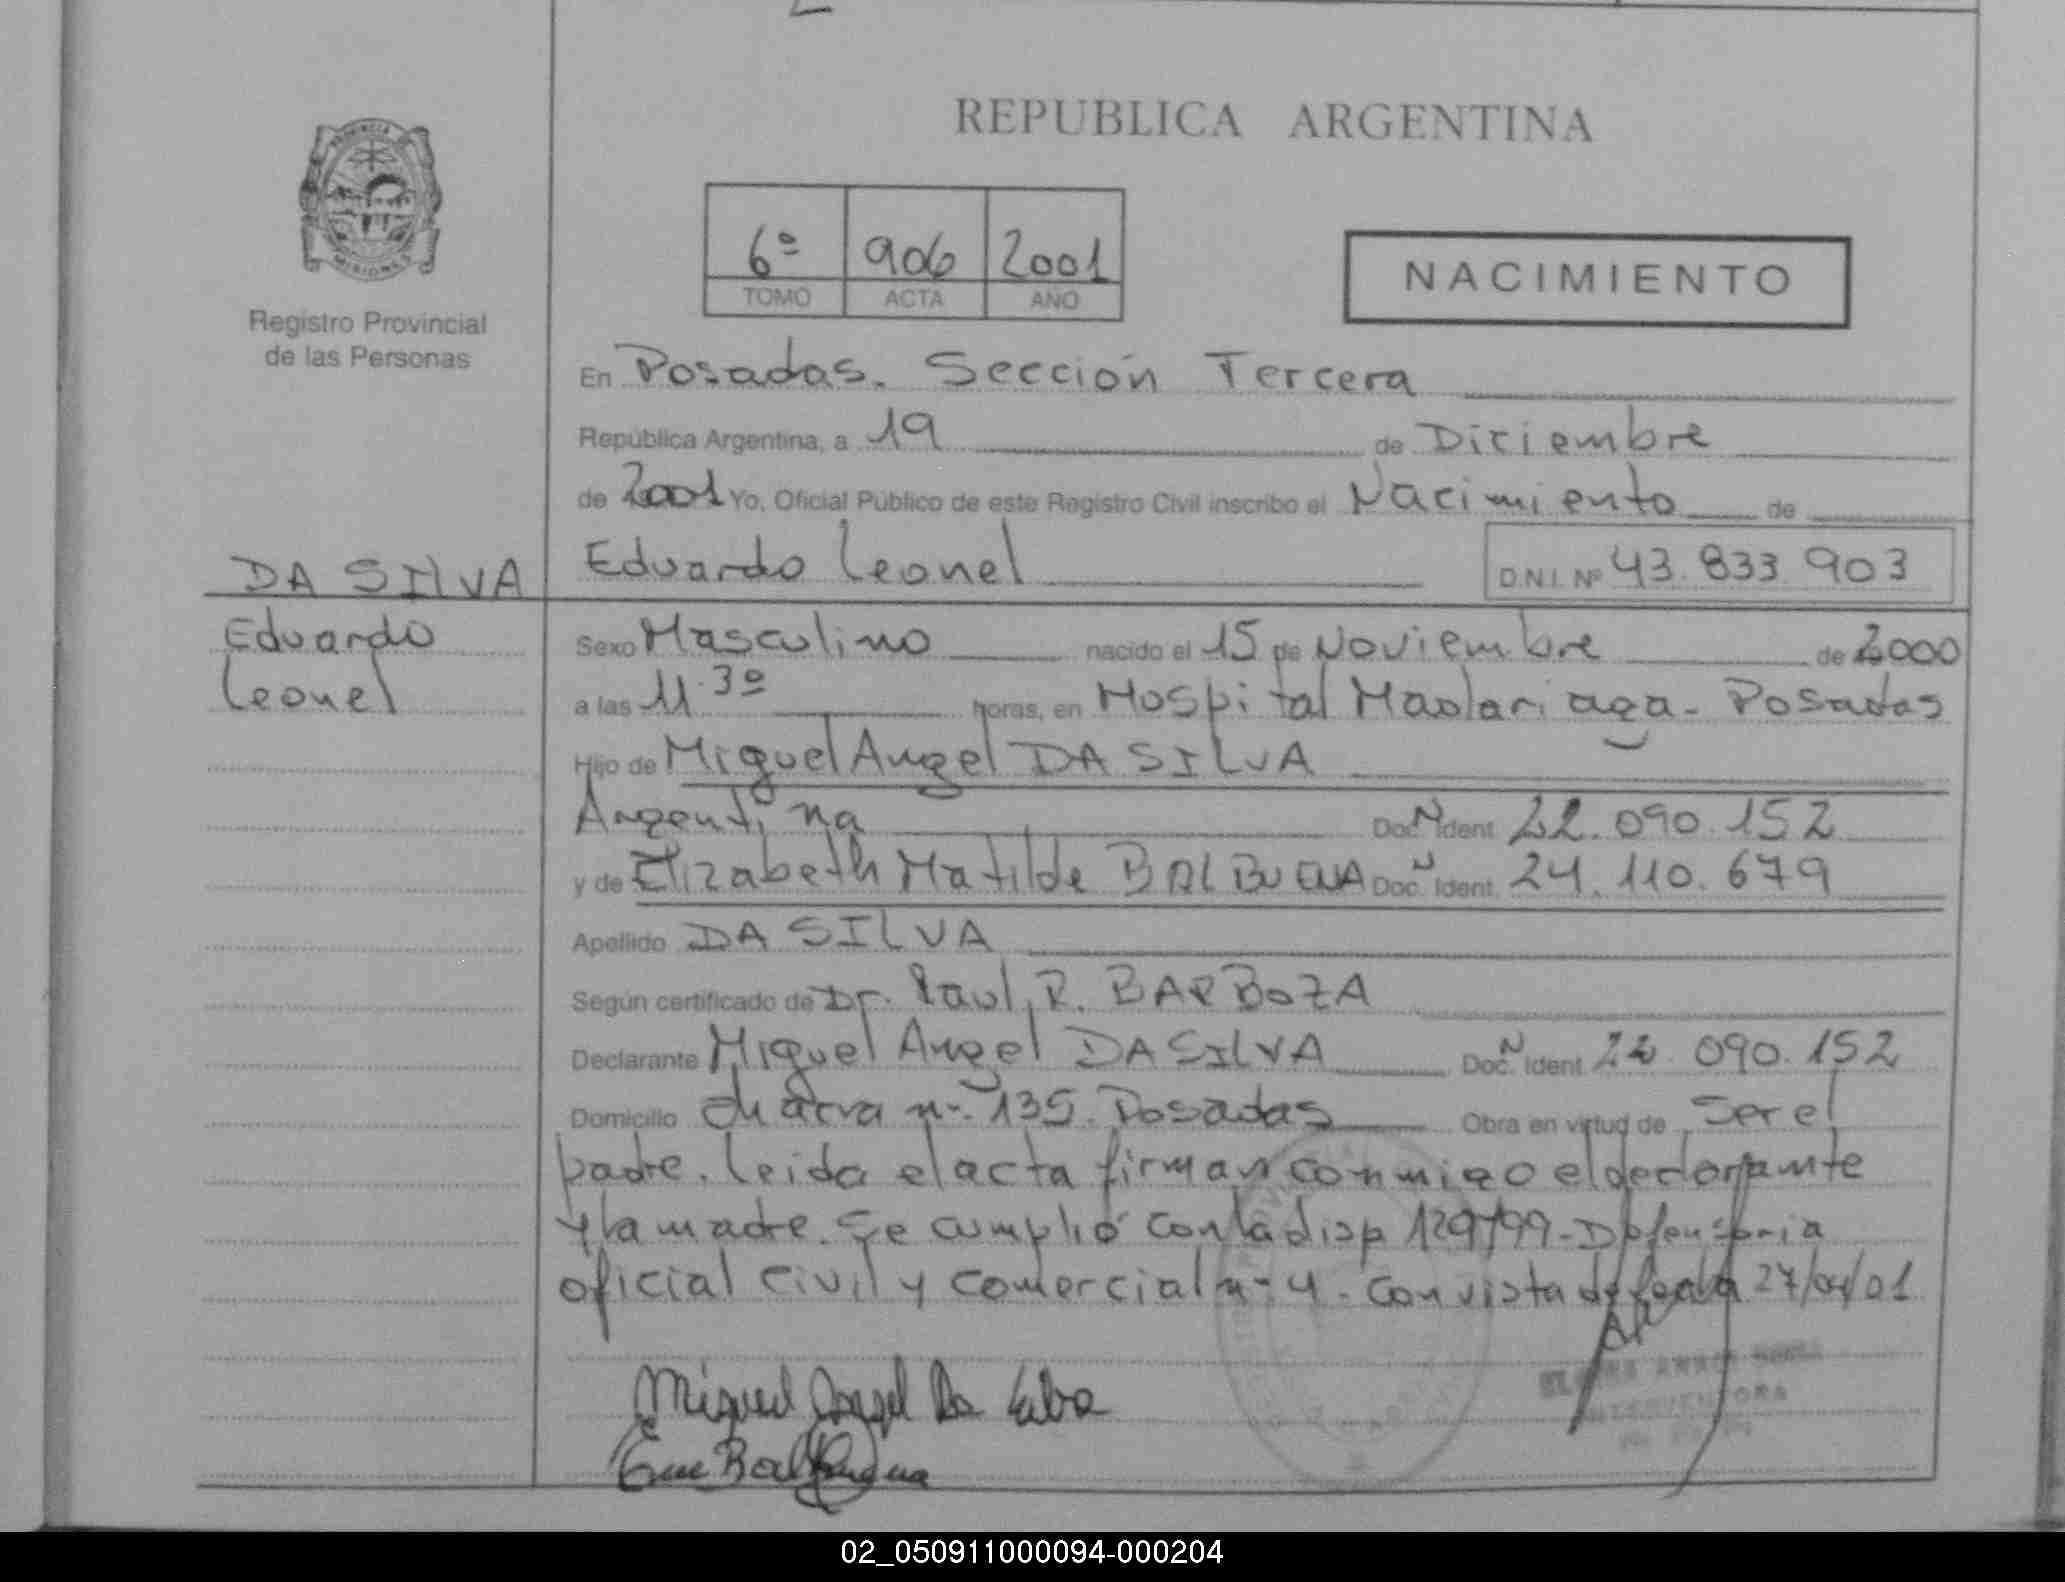 REPUBLICA ARGENTINA
PROVINCIA
MISIONES
Registro Provincial
de las Personas
6º 906 2001
TOMO ACTA AÑO
NACIMIENTO
En Posadas. Sección Tercera
República Argentina, a 19 de Diciembre
de 2001 Yo, Oficial Público de este Registro Civil inscribo el Nacimiento de
Eduardo Leonel D.N.I. Nº 43.833.903
DA SILVA
Eduardo
Leonel
Sexo Masculino nacido el 15 de Noviembre de 2000
a las 11.3º horas, en Hospital Madariaga - Posadas
Hijo de Miguel Angel DA SILVA
Argentina Doc. N Ident. 22.090.152
y de Elizabeth Matilde BALBUENA Doc. N Ident. 24.110.679
Apellido DA SILVA
Según certificado de Dr. Raul R. BARBOZA
Declarante Miguel Angel DA SILVA Doc. N Ident. 22.090.152
Domicilio Chacra nº 135. Posadas Obra en virtud de ser el
padre. Leida el acta firman conmigo el declarante
y la madre. Se cumplió con la disp 129/99 - Defensoria
oficial civil y comercial nº 4. Con vista de fecha 27/04/01
Miguel Angel Da Silva
Balbuena
INTERVENTORA
02_050911000094-000204